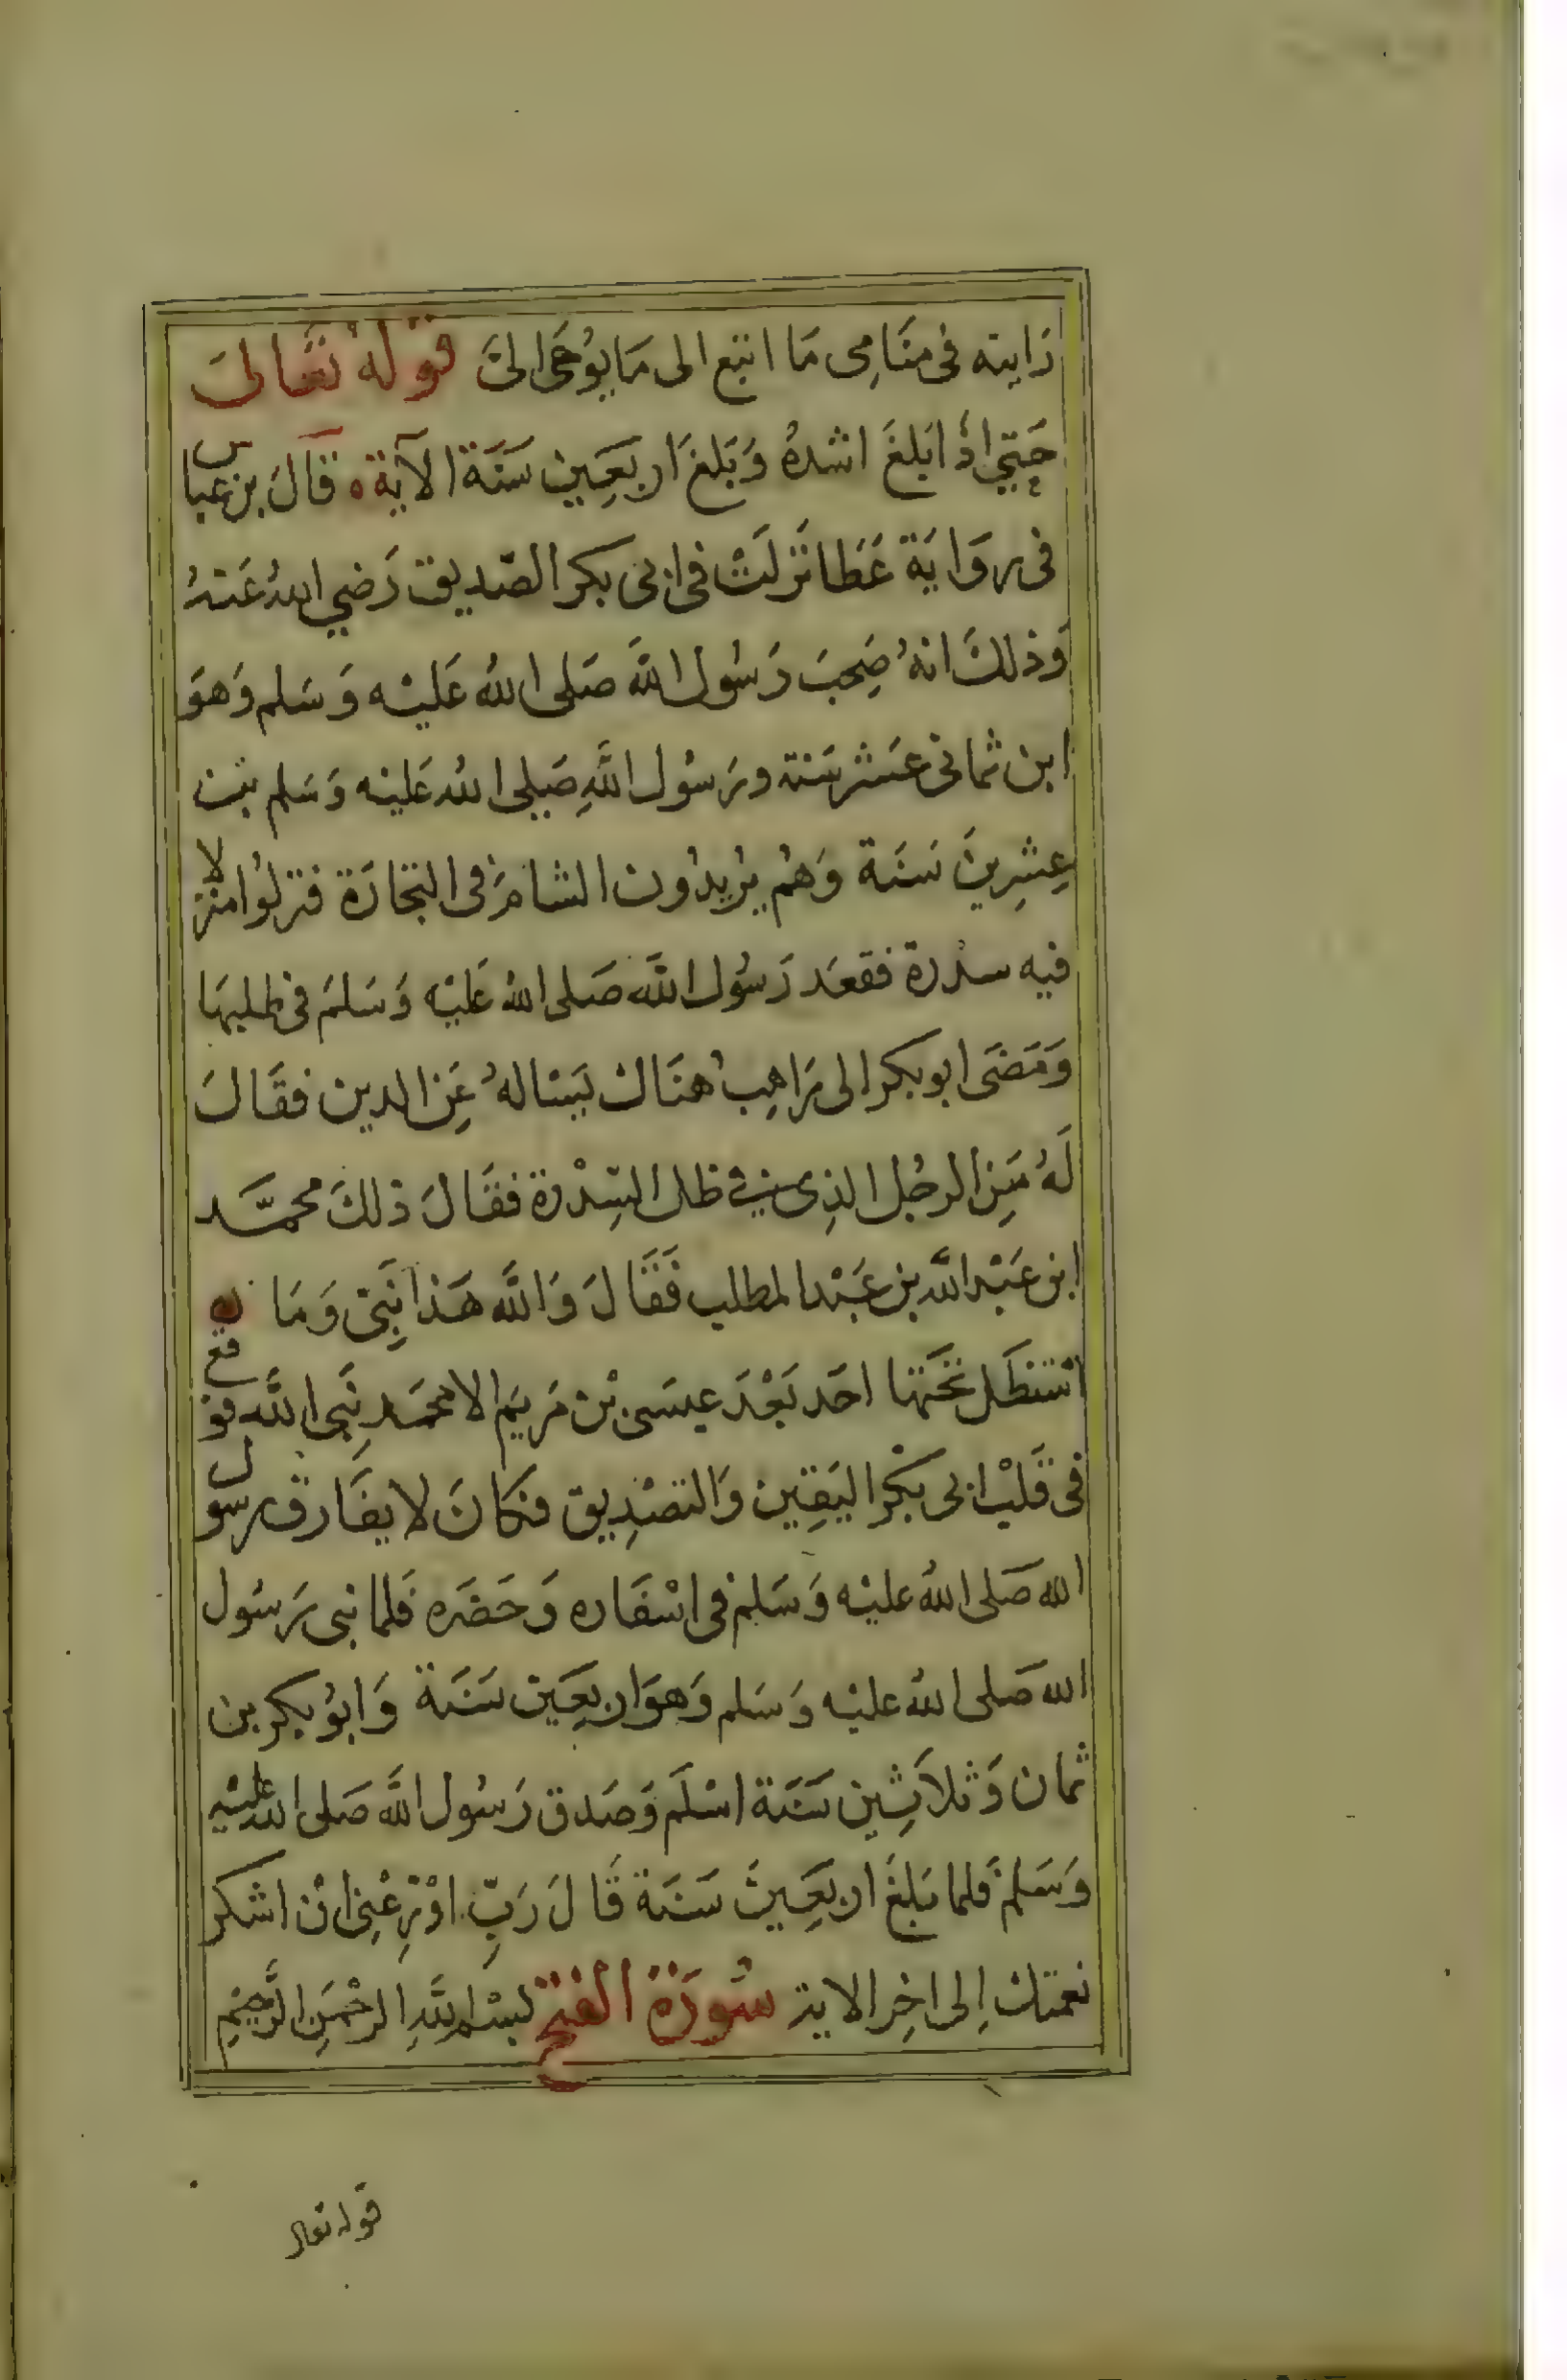 رَايته فى منَامِى مَا اتبع الى مَا يوُحَى الىَّ قوله تعَالىَ
حَتيّ اذَا ابَلغَ اشدهُ وَبَلغَ اربَعِين سَنَة الآيَة ٥ قَالَ بن عباس
فى روَايَة عَطَا نَزلَتْ فى ابى بكر الصّديق رَضِي اللهُ عَنهُ
وَذلكَ انهُ صَحِبَ رَسُول اللَّه صَلى اللهُ عَليْه وَسَلم وَهوَ
ابن ثمانى عشَر سَنة ورَسُول اللَّهِ صَلى اللهُ عَليْه وَسَلم بن
عِشرِينَ سَنَة وَهُم يرُيدُون الشامَ فى التجَارَة فنزلوُا منزلا
فيه سدْرة فقعَد رَسُول اللَّه صَلى اللهُ عَليْه وَسَلمَ فى ظلها
وَمَضَى ابو بكر الى رَاهِب هنَاك يَسْالهُ عَنِ الدين فقَالَ
لَهُ مَنِ الرجُل الذِى في ظل السِدْرة فقَالَ ذلكَ محمَّد
ابن عَبْد اللَّه بن عَبْد المطلب فَقَالَ وَاللَّه هَذا نَبِىّ وَمَا
اسْتظَل تَحَتها احَد بَعْدَ عيسَى بْن مَريَم الا محمَد نَبِى اللَّه فوقع
فى قَلبْ ابى بَكْر اليَقِين وَالتصْدِيق فكانَ لا يفَارق رسول
الله صَلى اللهُ عليْه وَسَلم فى اسْفَاره وَحَضَره فَلما نبى رَسُول
الله صَلى اللهُ عليْه وَسَلم وَهوَ اربَعِين سَنَة وَابوُ بكر بن
ثمان وَثلاَثِين سَنَة اسْلَم وَصَدق رَسُول اللَّه صَلى الله عليْه
وَسَلم فَلما بَلغَ اربَعِينَ سَنَة قَالَ رَبِّ اوْزِعْنِى انْ اشكر
نعمتك اِلى اخِر الاية سُورَة الفتح بسْم اللَّهِ الرحْمَنِ الرَّحِيْمِ
قوله تعالى